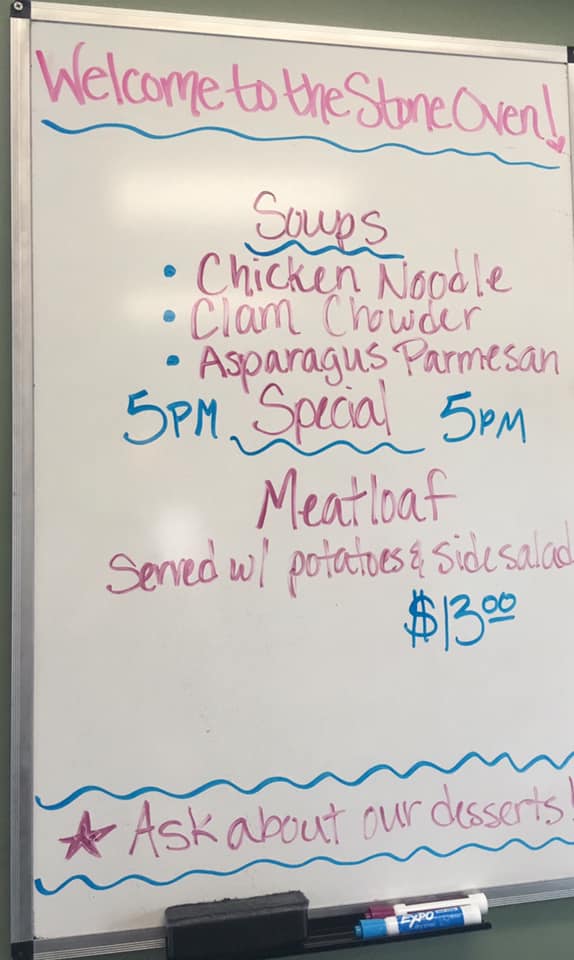 Welcome to the Stone Oven!
Soups
• Chicken Noodle
• Clam Chowder
• Asparagus Parmesan
5PM Special 5PM
Meatloaf
Served w/ potatoes & side salad
$13.00
★ Ask about our desserts!
EXPO